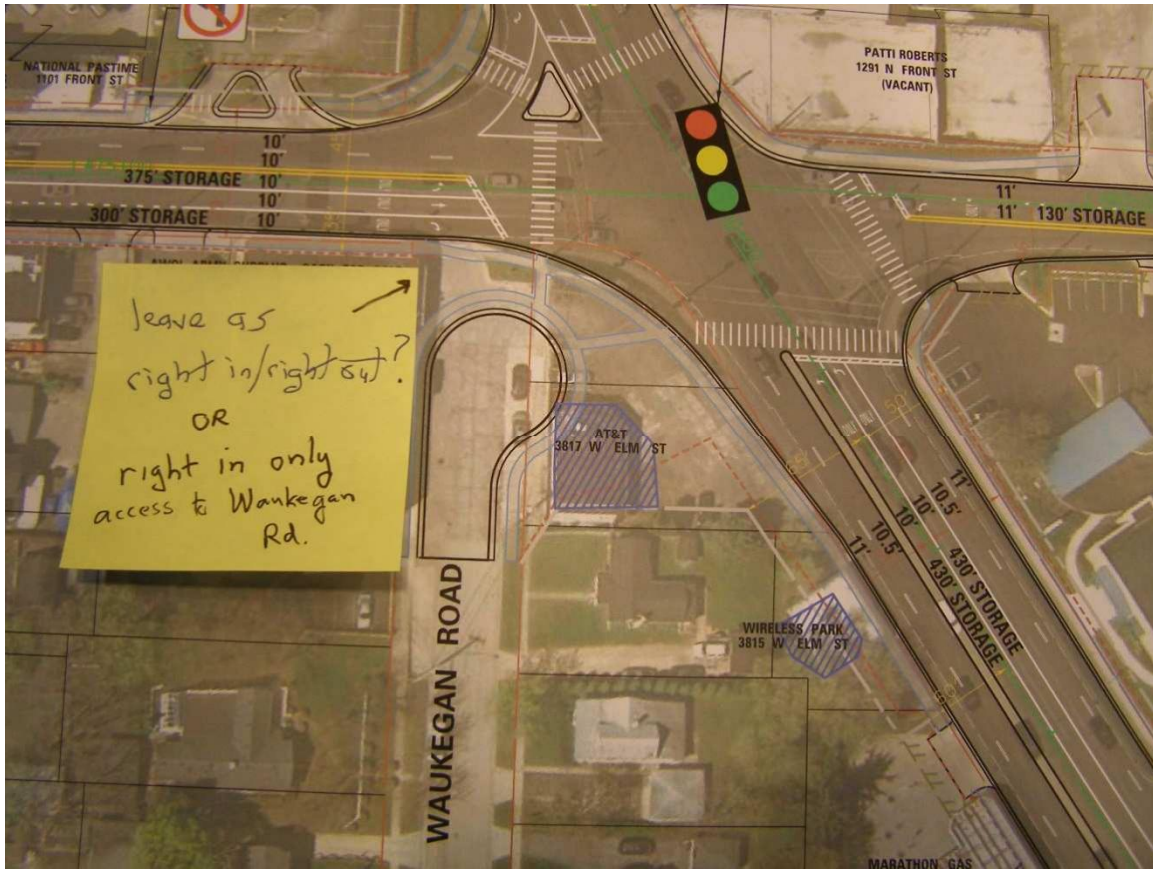 NATIONAL PASTIME
1101 FRONT ST
PATTI ROBERTS
1291 N FRONT ST
(VACANT)
10'
10'
375' STORAGE 10'
10'
300' STORAGE 10'
11'
11' 130' STORAGE
leave as
right in/right out?
OR
right in only
access to Waukegan
Rd.
AT&T
3817 W ELM ST
WIRELESS PARK
3815 W ELM ST
WAUKEGAN ROAD
11'
10.5'
10'
430' STORAGE
10'
10.5'
11'
430' STORAGE
MARATHON GAS